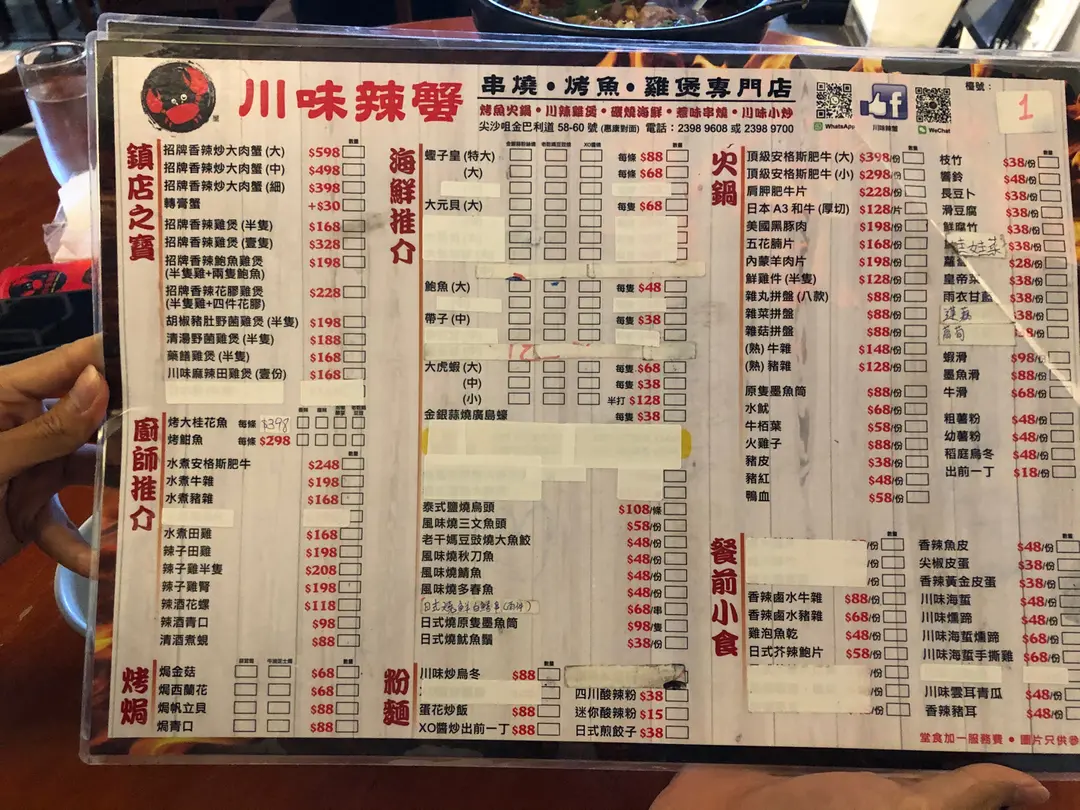 川味辣蟹
串燒•烤魚•雞煲專門店
烤魚火鍋•川辣雞煲•礦燒海鮮•惹味串燒•川味小炒
尖沙咀金巴利道 58-60 號 (惠康對面) 電話：2398 9608 或 2398 9700
WhatsApp
川味辣蟹
WeChat
檯號：
1
鎮店之寶
數量
招牌香辣炒大肉蟹 (大) $598
招牌香辣炒大肉蟹 (中) $498
招牌香辣炒大肉蟹 (細) $398
轉膏蟹 +$30
招牌香辣雞煲 (半隻) $168
招牌香辣雞煲 (壹隻) $328
招牌香辣鮑魚雞煲 $198
(半隻雞+兩隻鮑魚)
招牌香辣花膠雞煲 $228
(半隻雞+四件花膠)
胡椒豬肚野菌雞煲 (半隻) $198
清湯野菌雞煲 (半隻) $188
藥膳雞煲 (半隻) $168
川味麻辣田雞煲 (壹份) $168
廚師推介
烤大桂花魚 每條 $398
烤鮰魚 每條 $298
數量
水煮安格斯肥牛 $248
水煮牛雜 $198
水煮豬雜 $168
水煮田雞 $168
辣子田雞 $198
辣子雞半隻 $208
辣子雞腎 $198
辣酒花螺 $118
辣酒青口 $98
清酒煮蜆 $88
烤焗
數量
焗金菇 $68
焗西蘭花 $68
焗帆立貝 $88
焗青口 $88
海鮮推介
XO醬燒
數量
蟶子皇 (特大) 每條 $88
(大) 每條 $68
大元貝 (大) 每隻 $68
鮑魚 (大) 每隻 $48
帶子 (中) 每隻 $38
大虎蝦 (大) 每隻 $68
(中) 每隻 $38
(小) 半打 $128
金銀蒜燒廣島蠔 每隻 $38
泰式鹽燒烏頭 $108/條
風味燒三文魚頭 $58/份
老干媽豆豉燒大魚餃 $48/份
風味燒秋刀魚 $48/份
風味燒鯖魚 $48/份
風味燒多春魚 $48/份
$68/串
日式燒原隻墨魚筒 $98/隻
日式燒魷魚鬚 $38/份
粉麵
數量
川味炒烏冬 $88
蛋花炒飯 $88
XO醬炒出前一丁 $88
四川酸辣粉 $38
迷你酸辣粉 $15
日式煎餃子 $38
火鍋
數量
頂級安格斯肥牛 (大) $398/份
頂級安格斯肥牛 (小) $298/份
肩胛肥牛片 $228/份
日本 A3 和牛 (厚切) $128/片
美國黑豚肉 $198/份
五花腩片 $168/份
內蒙羊肉片 $198/份
鮮雞件 (半隻) $128/份
雜丸拼盤 (八款) $88/份
雜菜拼盤 $88/份
雜菇拼盤 $88/份
(熟) 牛雜 $148/份
(熟) 豬雜 $128/份
原隻墨魚筒 $88/份
水魷 $68/份
牛栢葉 $58/份
火雞子 $88/份
豬皮 $38/份
豬紅 $48/份
鴨血 $58/份
數量
枝竹 $38/份
響鈴 $48/份
長豆卜 $38/份
滑豆腐 $38/份
鮮腐竹 $38/份
娃娃菜 $38/份
$28/份
皇帝菜 $38/份
雨衣甘藍 $38/份
$38/份
蝦滑 $98/份
墨魚滑 $88/份
牛滑 $68/份
粗薯粉 $48/份
幼薯粉 $48/份
稻庭烏冬 $48/份
出前一丁 $18/份
餐前小食
數量
香辣鹵水牛雜 $88/份
香辣鹵水豬雜 $68/份
雞泡魚乾 $48/份
日式芥辣鮑片 $58/份
數量
香辣魚皮 $48/份
尖椒皮蛋 $38/份
香辣黃金皮蛋 $38/份
川味海蜇 $48/份
川味燻蹄 $48/份
川味海蜇燻蹄 $48/份
川味海蜇手撕雞 $68/份
川味雲耳青瓜 $48/份
香辣豬耳 $48/份
堂食加一服務費•圖片只供參